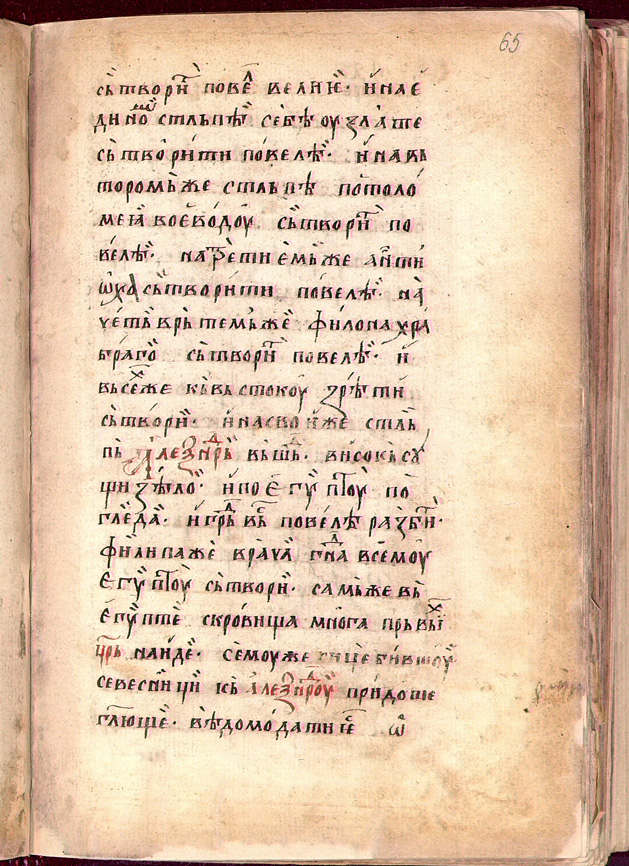 65
сътворⷮи повеⷧ велиѥ · и на ѥ
диноⷨ стльпѣ себѣ оу злате
сътворити повелѣ · и на въ
торомьже стльпѣ потоло
меꙗ воѥводоу сътворⷮи по
велѣ · на третиѥмьже анти
ѡха сътворити повелѣ · на
четьврьтемьже филона хра
браго сътворⷮи повелѣ · и
вьсеⷯже кь вьстокоу зрѣти
сътвори · и на своиже стль
пь Алеⷦ҇заⷣрь вьшь · високь сꙋ
щи зѣло · и по ѥгѵптоу по
гледа · и граⷣ вьⷭ повелѣ разⷣби ·
филипаже врача гнⷣа всемоу
ѥгѵптоу сътвори · самьже вь
ѥгѵпте скровища многа прьвыⷯ
црь наиде · семоуже сице бившоу
севесници кь алеⷦ҇заⷣроу придоше
глюще · вѣдомо да ти ѥⷭ ѿ